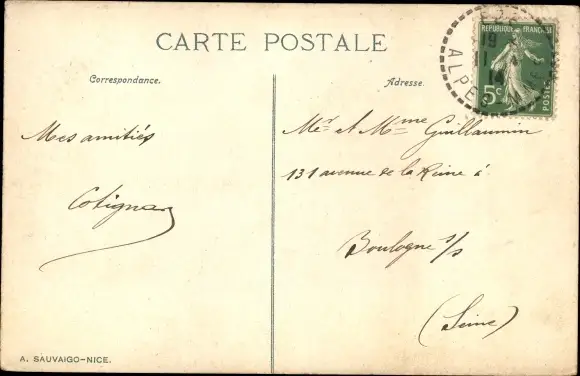 CARTE POSTALE
Correspondance.
Adresse.
REPUBLIQUE FRANÇAISE
5c
POSTES
EZE
19
14
ALPES
Mes amitiés
Mr et Mme Guillaumin
131 avenue de la Reine à
Boulogne s/s
(Seine)
A. SAUVAIGO-NICE.